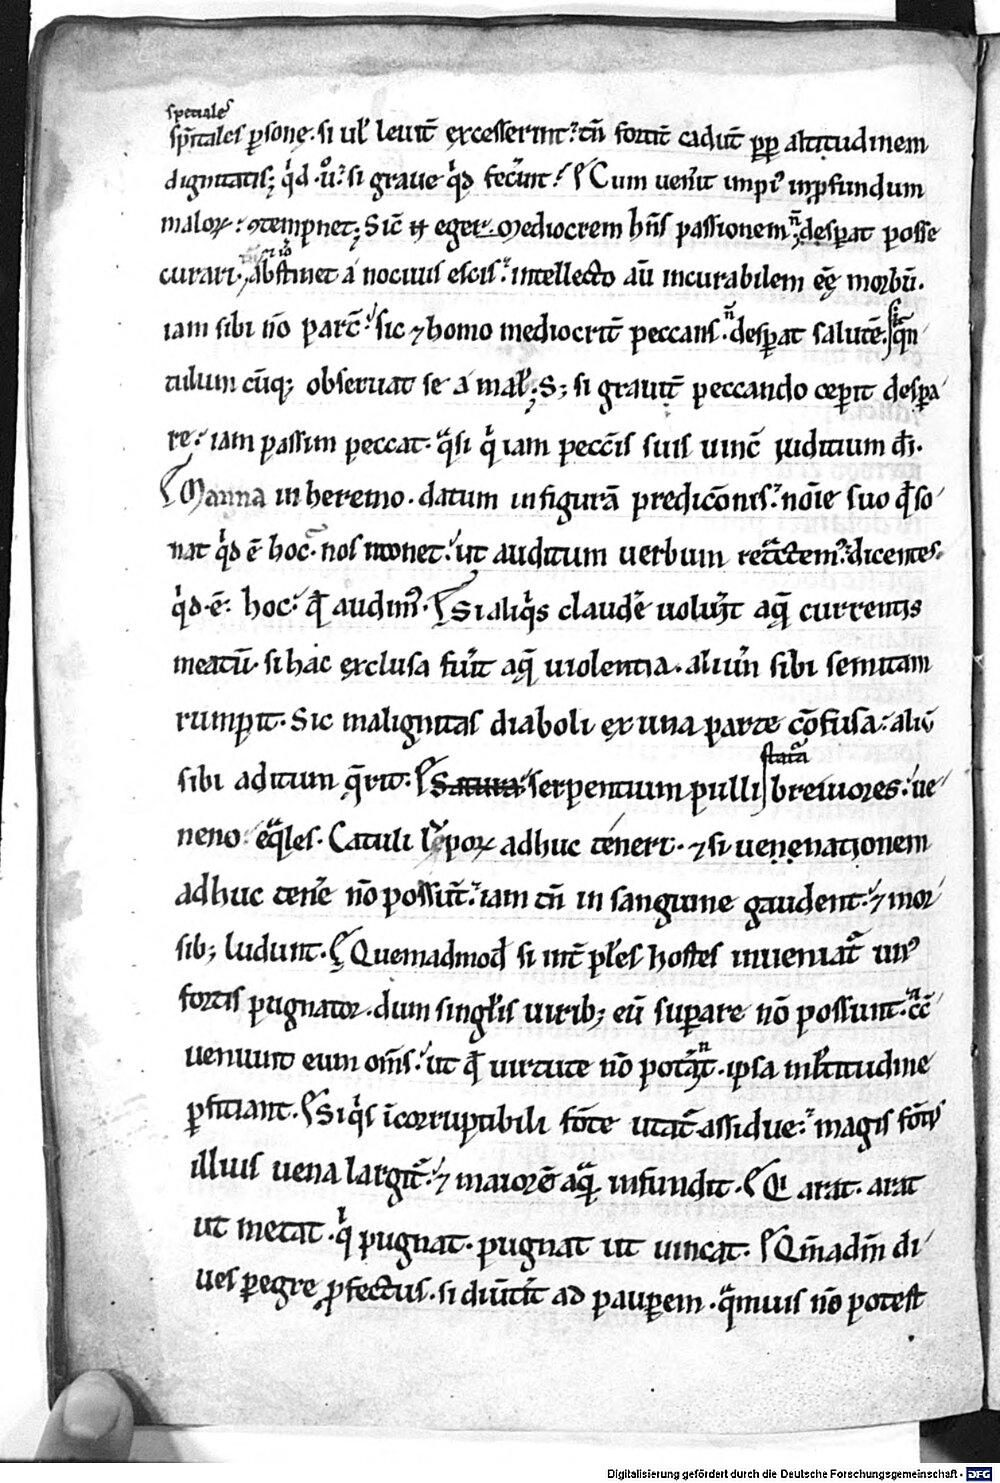 speciales
sp̄itales p̱sonę. si ul̄ leuit̄ ęxcesserint. tn̄ fortit̄ cadūt ṗp̱ altitudinem
dignitatis; qͥd. ů. si graue qͥd fec̄int. Cum uen̄it impiꝰ in ꝓfundum
maloꝝ. ꝯtempnet; Sic̄ ⁊ eger mediocrem hn̄s passionem ⁿ desp̱at posse
curari. abstinet a nociuis escis. intellecto aū incurabilem eę̄ morbū.
iam sibi nō parc̄. sic ⁊ homo mediocrit̄ peccans. ⁿ desp̱at salutē. qᷓn
tulum cūq; obseruat se a mal̄; S; si grauit̄ peccando cep̱it desp̱a
re. iam passim peccat. qᷓsi qͥ iam pecc̄is suis uinc̄ iuditium dī.
Manna in heremo. datum in figurā predicōnis. nōie suo qđ so
nat qͥd ē hoc. nos monet. ut auditum uerbum retᷓctemꝰ. dicentes.
qͥd. ē. hoc. qđ audimꝰ. Si aliqͥs claud̄e uolu̾it aqᷓ currentis
meatū. si hac exclusa fu̾it aqᷓ uiolentia. aliun̄ sibi semitam
rump̱it. Sic malignitas diaboli ex una parte cōfusa. aliū
sibi aditum qᷓrit. Satura serpentium pulli statᷓa breuiores. ue
neno eqᷓles. Catuli lepoꝝ adhuc teneri. ⁊ si uenenationem
adhuc tene̾ nō possūt. iam tn̄ in sanguine gaudent. ⁊ mor
sib; ludunt. Quemadmod̄ si int̄ pl̄es hostes inueniat᷑ unꝰ
fortis pugnator. dum singl̄is uirib; eū sup̱are nō possunt. ⁿ cc̄
ueniunt eum om̄s. ut qđ uirtute nō pot̾it. ipsa ml̄titudine
p̱ficiant. Si qͥs īcorruptibili fōte utat̄ assidue. magis fōtis
illius uena largit̄. ⁊ maiorē aqᷓ infundit. Qͥ arat. arat
ut metat. qͥ pugnat. pugnat ut uincat. Qm̄adm̄ di
ues p̱egre ꝓfectus. si diūtit̄ ad paup̱em. qᷓmuis nō potest
Digitalisierung gefördert durch die Deutsche Forschungsgemeinschaft - DFG